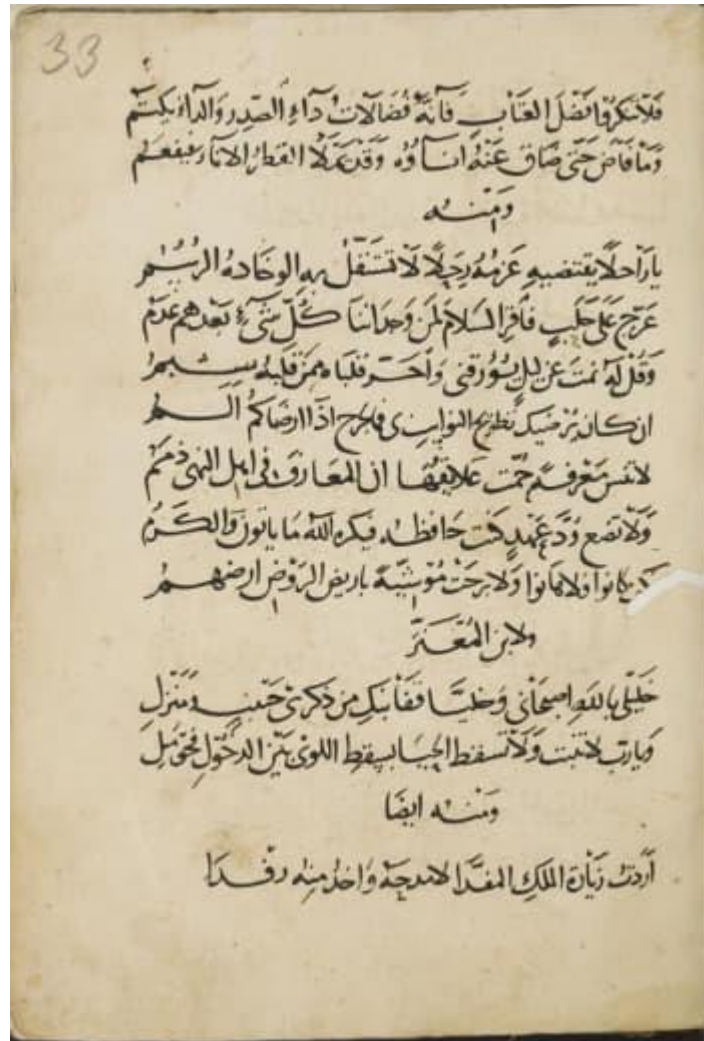 33
فَلَا تنكروا فَضْلَ العتَابِ فَاِنَّهُ فُضَالَاتُ دَآءِ الصّدِر وَالدآءُ يكتَم
وَمَا فَاضَ حَتّى ضَاقَ عَنْهُ اناؤه وَقَد تملأ القطر الانآء فيفعم
وَمنْه
يا رَاحلًا يقتضيهِ عَزمهُ رحلًا لَا تستقلّ بهِ الوخّادةُ الرُسُم
عَرّج عَلى حَلَبٍ فَاقرا السَلامَ لمَن وجداننا كُلّ شئٍ بَعدَهم عَدَم
وَقُل لَهُ نمتَ عَن ليلٍ يُؤَرقنى وَاحَرّ قلبَاه ممّن قلبهُ شبمُ
ان كان يُرضيك فما لجرح اذا ارضاكمُ الَمُ
لا تنس مَعرفةً ان المعَارفَ فى اهل النهى ذممُ
وَلَا تضع وُدَّ عَهْدٍ كنتَ حَافظه فيكره اللّه مَا ياتونَ وَالكَرَمُ
بانوا ولا بانوا وَلا برحَتْ باريض الرَوْضِ ارضهمُ
ولابن المُعْتَزّ
خليلىَّ باللّهِ اصبحَانى وَخليَا قفَا نبكِ من ذكرى حَبيب وَمَنزلِ
وَيا ربّ لا تنبت وَلا تسقط الحيَا بسقط اللوى بَيْن الدخُولِ فحَومَلِ
وَمنْه ايضًا
اَردتُ زيارة الملكِ المفدَّا لامدحهُ وَاخذ منه رفدَا